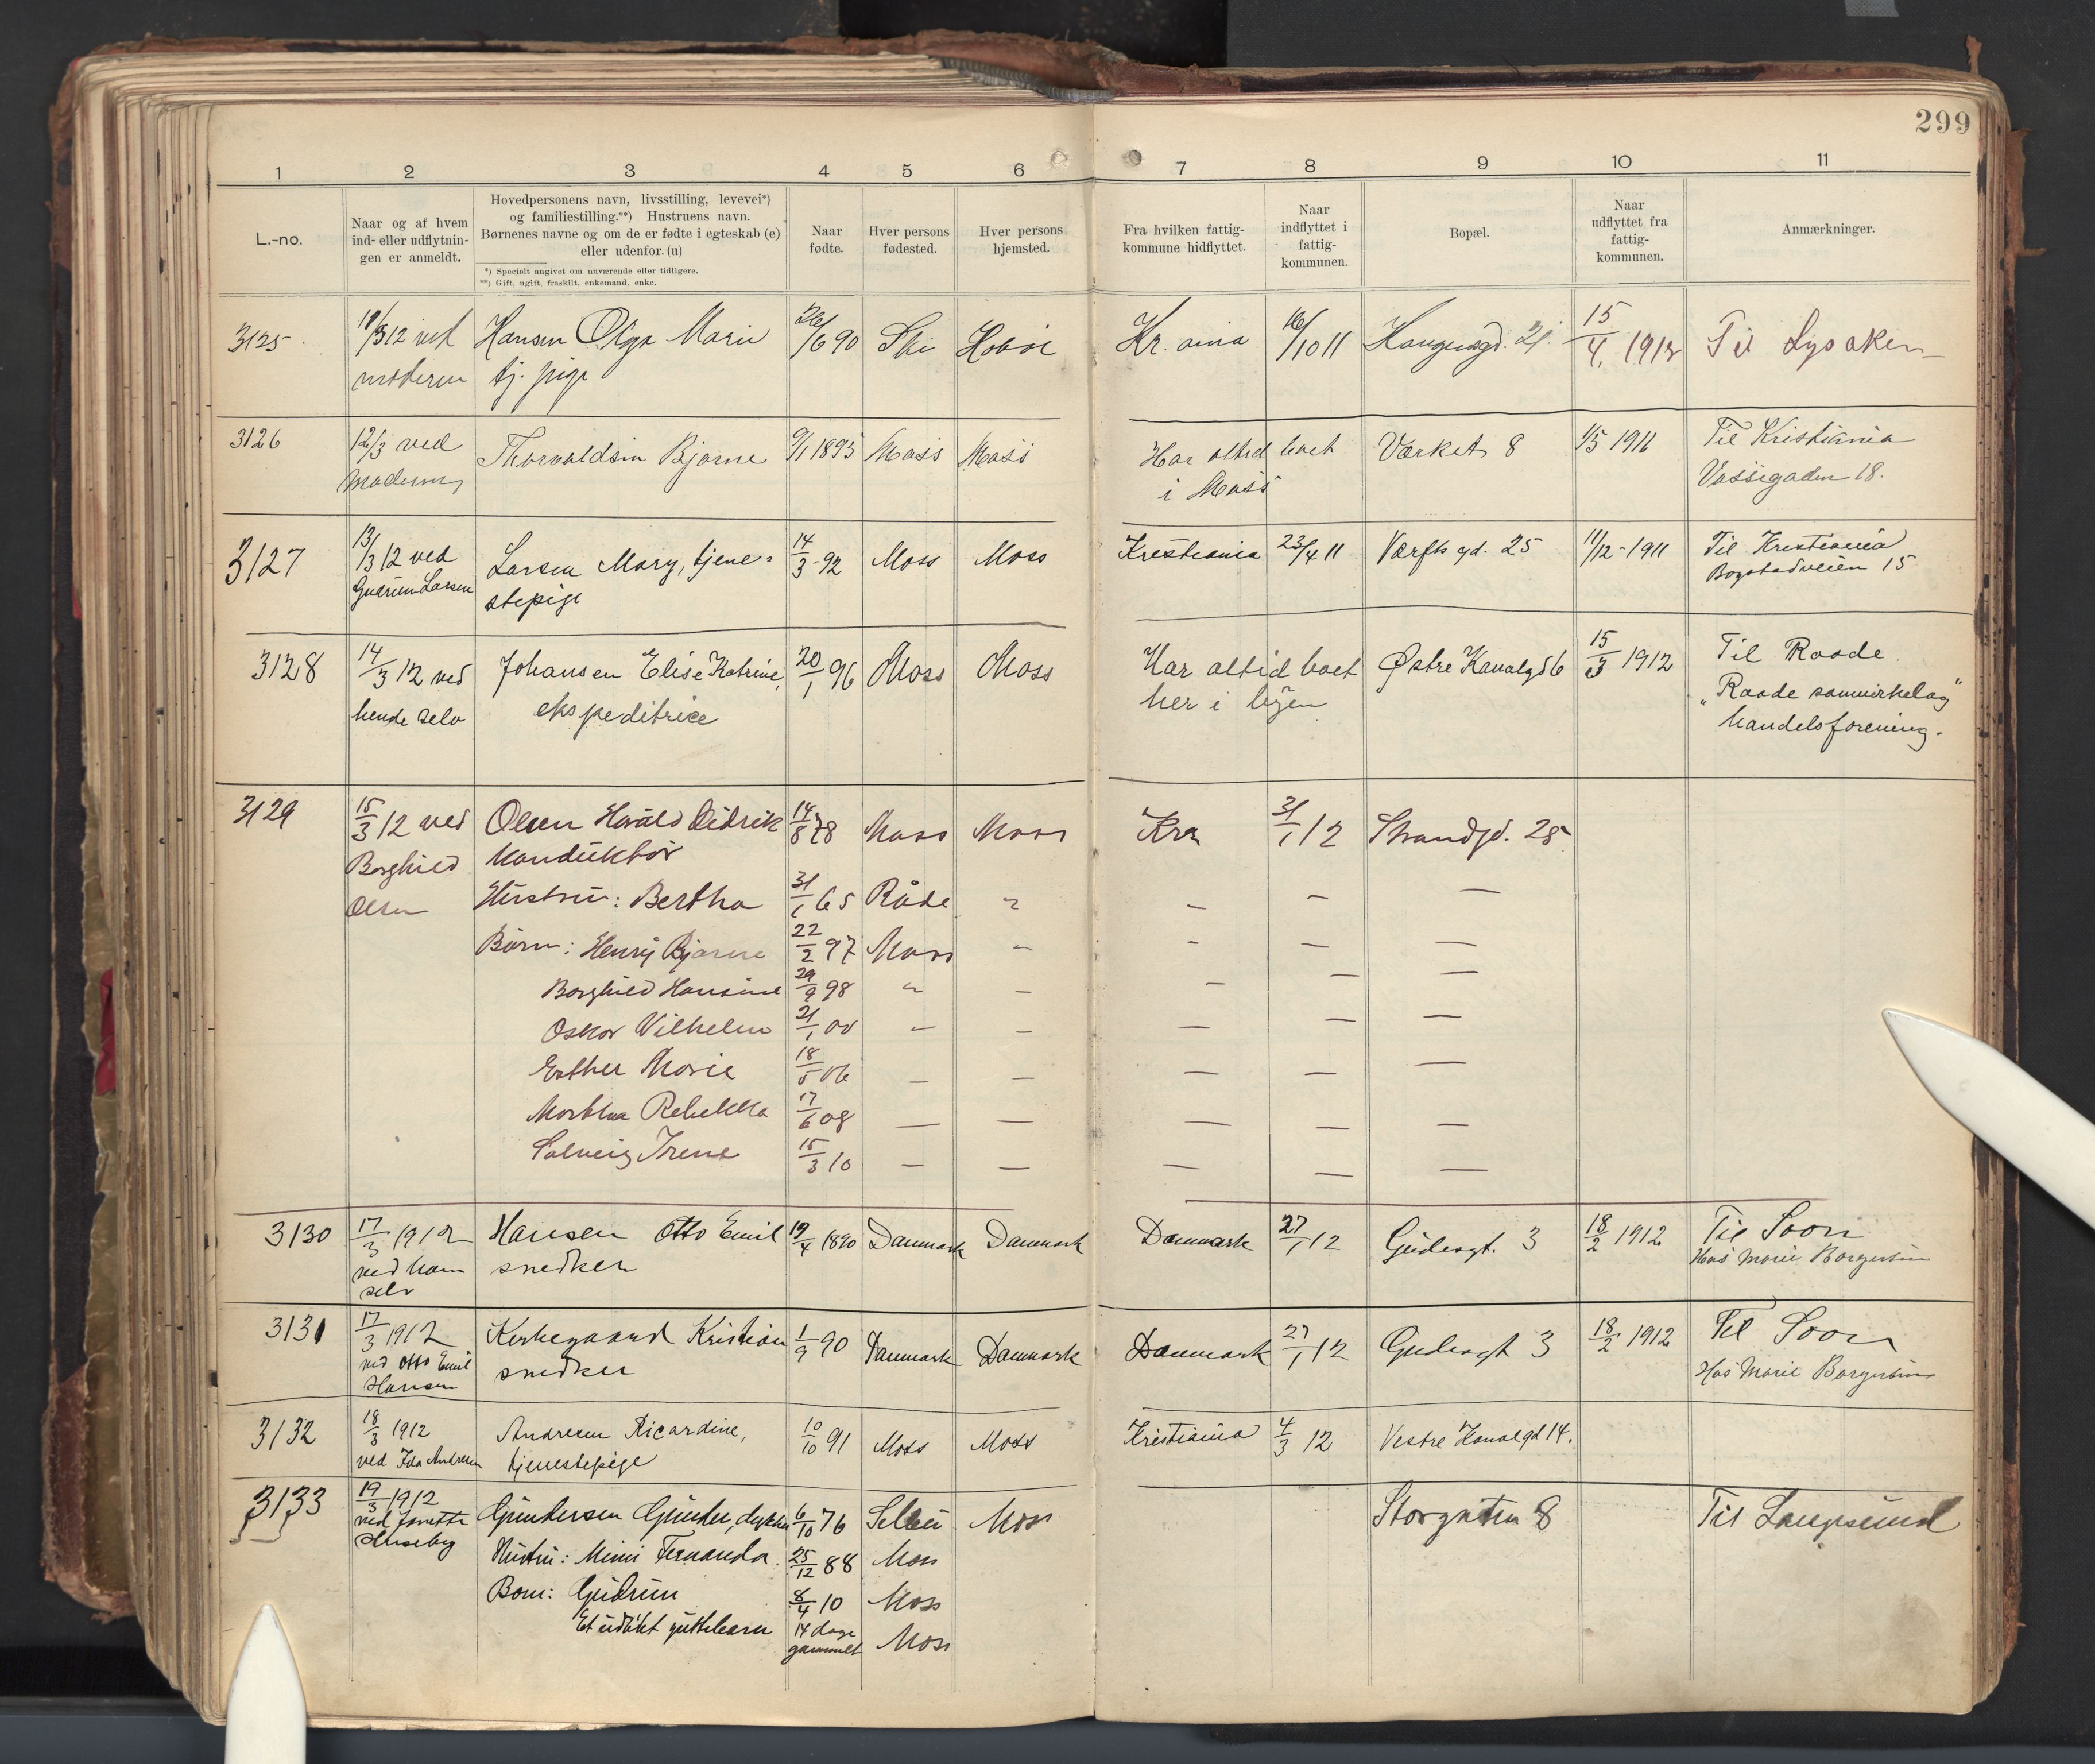 299
1 2 3 4 5 6 7 8 9 10 11
L.-no.
Naar og af hvem
ind- eller udflytnin-
gen er anmeldt.
Hovedpersonens navn, livsstilling, levevei*)
og familiestilling.**) Hustruens navn.
Børnenes navne og om de er fødte i egteskab (e)
eller udenfor. (u)
*) Specielt angivet om nuværende eller tidligere.
**) Gift, ugift, fraskilt, enkemand, enke.
Naar
fødte.
Hver persons
fødested.
Hver persons
hjemsted.
Fra hvilken fattig-
kommune hidflyttet.
Naar
indflyttet i
fattig-
kommunen.
Bopæl.
Naar
udflyttet fra
fattig-
kommunen.
Anmærkninger.
3125 ved Hansen Olga Marie 26/6 90 Ski Hobøl Kr. ania 16/10 11 15/4 1912 Til Lysaker
moderen tj. pige
3126 12/3 ved Thorvaldsen Bjarne 9/1 1895 Moss Moss Har altid boet Værket 8 1/5 1911 Til Kristiania
Moderen i Moss Vossigaden 18.
3127 13/3 12 ved Larsen Mary, tjene- 14/3-92 Moss Moss Kristiania 23/4 11 Værfts gd. 25 11/12-1911 Til Kristiania
Gudrun Larsen stepige Bogstadveien 15
3128 14/3 12 ved Johansen Elise Katrine, 20/1 96 Moss Moss Har altid boet Østre Kanalgd 6 15/3 1912 Til Raade
hende selv ekspeditrice her i byen "Raade samvirkelag"
handelsforening.
3129 15/3 12 ved Olsen Harald Didrik 14/8 78 Moss Moss Kra 31/1 12 Strandgd. 25
Borghild konduktør
Olsen Hustru: Bertha 31/1 65 Råde " — — —
Børn: Henry Bjarne 22/2 97 Moss — — — —
Borghild Hansine 29/9 98 " — — — —
Oskar Vilhelm 21/1 00 — — — — —
Esther Marie 18/5 06 — — — — —
Martha Rebekka 17/6 08 — — — — —
Solveig Irene 15/3 10 — — — — —
3130 17/3 1912 Hansen Otto Emil 19/4 1890 Danmark Danmark Danmark 27/1 12 Gudesgt. 3 18/2 1912 Til Soon
ved ham snedker Hos Marie Borgersen
selv
3131 17/3 1912 Kirkegaard Kristian 1/9 90 Danmark Danmark Danmark 27/1 12 Gudesgt 3 18/2 1912 Til Soon
ved Otto Emil snedker Hos Marie Borgersen
Hansen
3132 18/3 1912 Andresen Ricardine, 10/10 91 Moss Moss Kristiania 4/3 12 Vestre Kanalgd 14.
ved Ida Andresen tjenestepige
3133 19/3 1912 Gundersen Gunder, dykker 6/10 76 Moss Storgaten 8 Til Langesund
ved Huseby Hustru: Mimi Fernanda. 25/12 88 Moss
Barn: Gudrun 8/4 10 Moss
Et udøbt guttebarn 14 dage Moss
gammelt